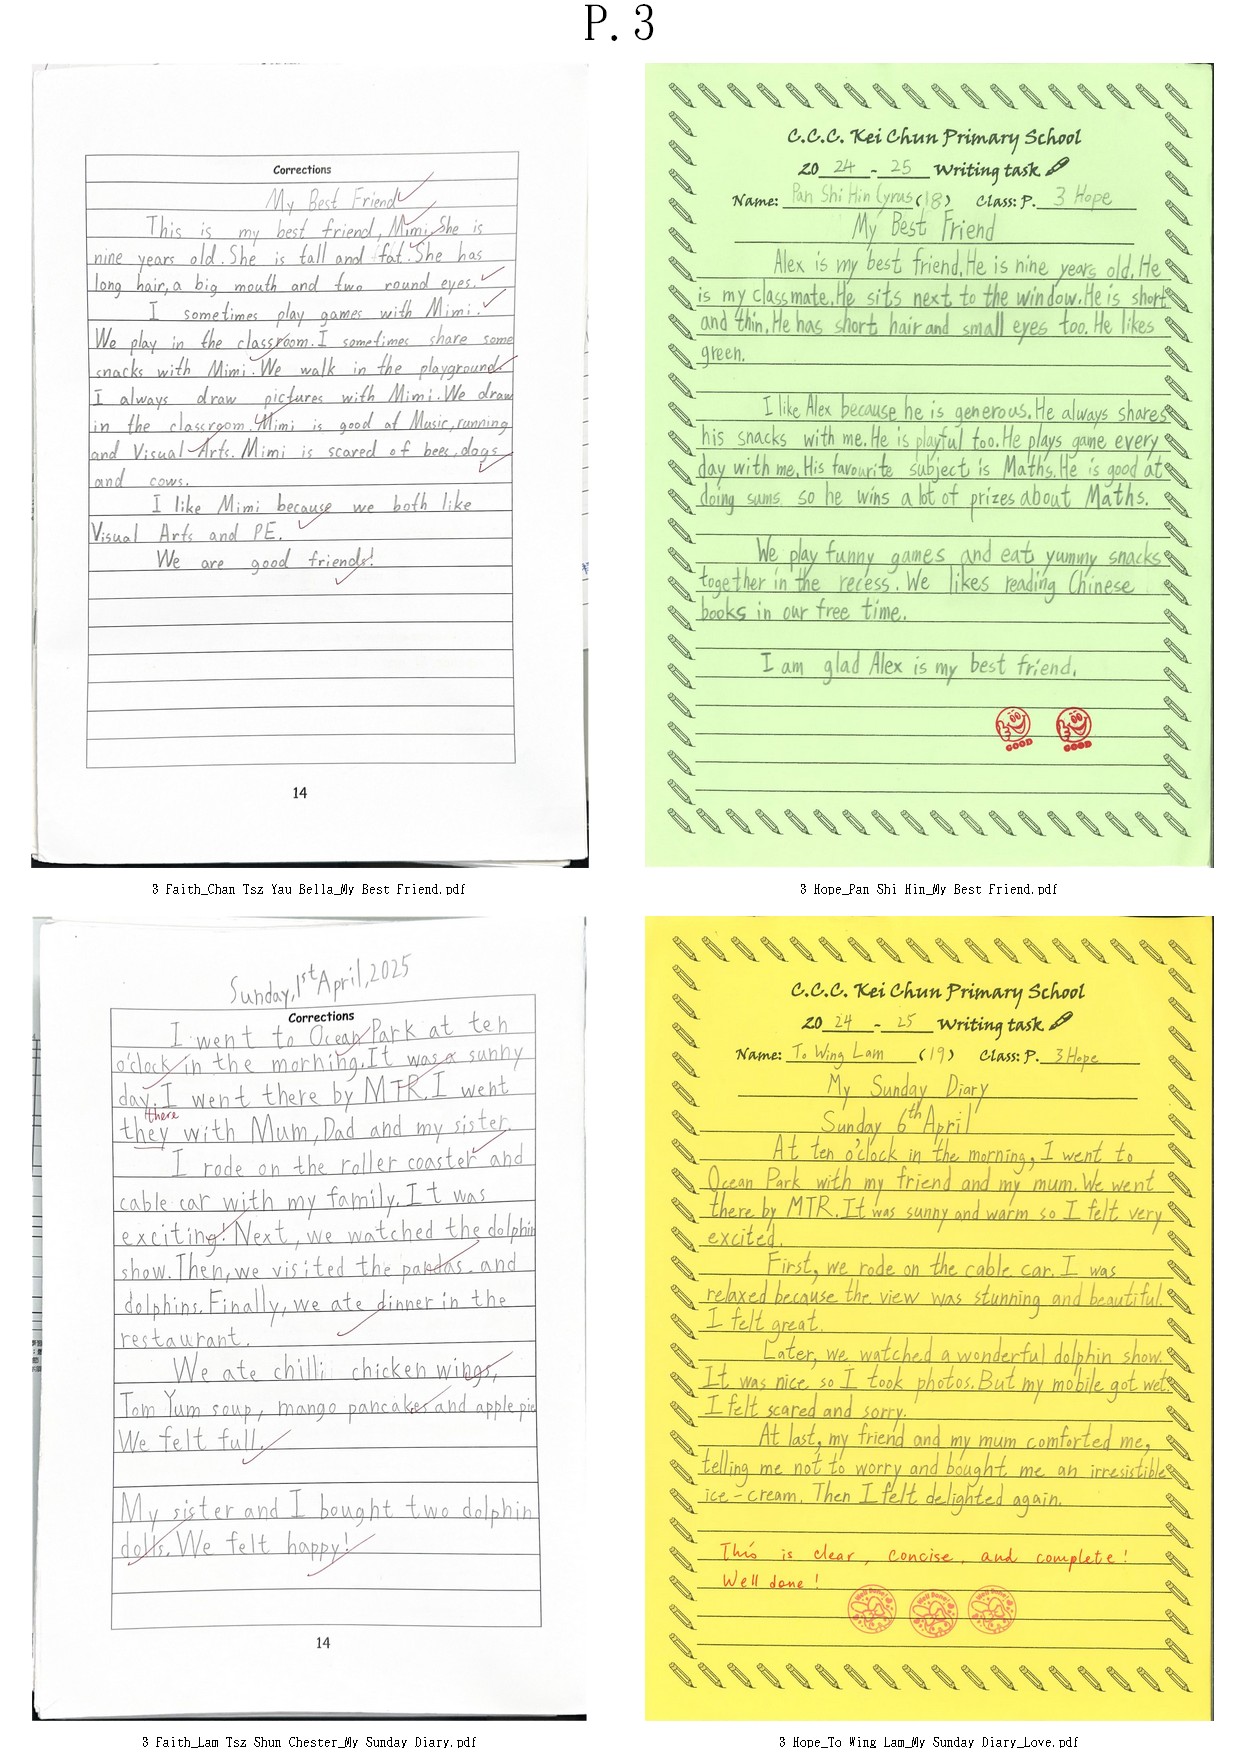 P.3
Corrections
My Best Friend
This is my best friend, Mimi. She is
nine years old. She is tall and fat. She has
long hair, a big mouth and two round eyes.
I sometimes play games with Mimi.
We play in the classroom. I sometimes share some
snacks with Mimi. We walk in the playground.
I always draw pictures with Mimi. We draw
in the classroom. Mimi is good at Music, running
and Visual Arts. Mimi is scared of bees, dogs
and cows.
I like Mimi because we both like
Visual Arts and PE.
We are good friends!
14
3 Faith_Chan Tsz Yau Bella_My Best Friend.pdf
C.C.C. Kei Chun Primary School
20 24 - 25 Writing task
Name: Pan Shi Hin Cyrus (18) Class: P. 3 Hope
My Best Friend
Alex is my best friend. He is nine years old. He
is my classmate. He sits next to the window. He is short
and thin. He has short hair and small eyes too. He likes
green.
I like Alex because he is generous. He always shares
his snacks with me. He is playful too. He plays game every
day with me. His favourite subject is Maths. He is good at
doing sums so he wins a lot of prizes about Maths.
We play funny games and eat yummy snacks
together in the recess. We likes reading Chinese
books in our free time.
I am glad Alex is my best friend.
GOOD GOOD
3 Hope_Pan Shi Hin_My Best Friend.pdf
Sunday, 1st April, 2025
Corrections
I went to Ocean Park at ten
o'clock in the morning. It was a sunny
day. I went there by MTR. I went
there
they with Mum, Dad and my sister.
I rode on the roller coaster and
cable car with my family. It was
exciting! Next, we watched the dolphin
show. Then, we visited the pandas and
dolphins. Finally, we ate dinner in the
restaurant.
We ate chilli chicken wings,
Tom Yum soup, mango pancakes and apple pie
We felt full.
My sister and I bought two dolphin
dolls. We felt happy!
14
3 Faith_Lam Tsz Shun Chester_My Sunday Diary.pdf
C.C.C. Kei Chun Primary School
20 24 - 25 Writing task
Name: To Wing Lam (19) Class: P. 3 Hope
My Sunday Diary
Sunday 6th April
At ten o'clock in the morning, I went to
Ocean Park with my friend and my mum. We went
there by MTR. It was sunny and warm so I felt very
excited.
First, we rode on the cable car. I was
relaxed because the view was stunning and beautiful.
I felt great.
Later, we watched a wonderful dolphin show.
It was nice so I took photos. But my mobile got wet.
I felt scared and sorry.
At last, my friend and my mum comforted me,
telling me not to worry and bought me an irresistible
ice-cream. Then I felt delighted again.
This is clear, concise, and complete!
Well done!
Well Done! Well Done! Well Done!
3 Hope_To Wing Lam_My Sunday Diary_Love.pdf